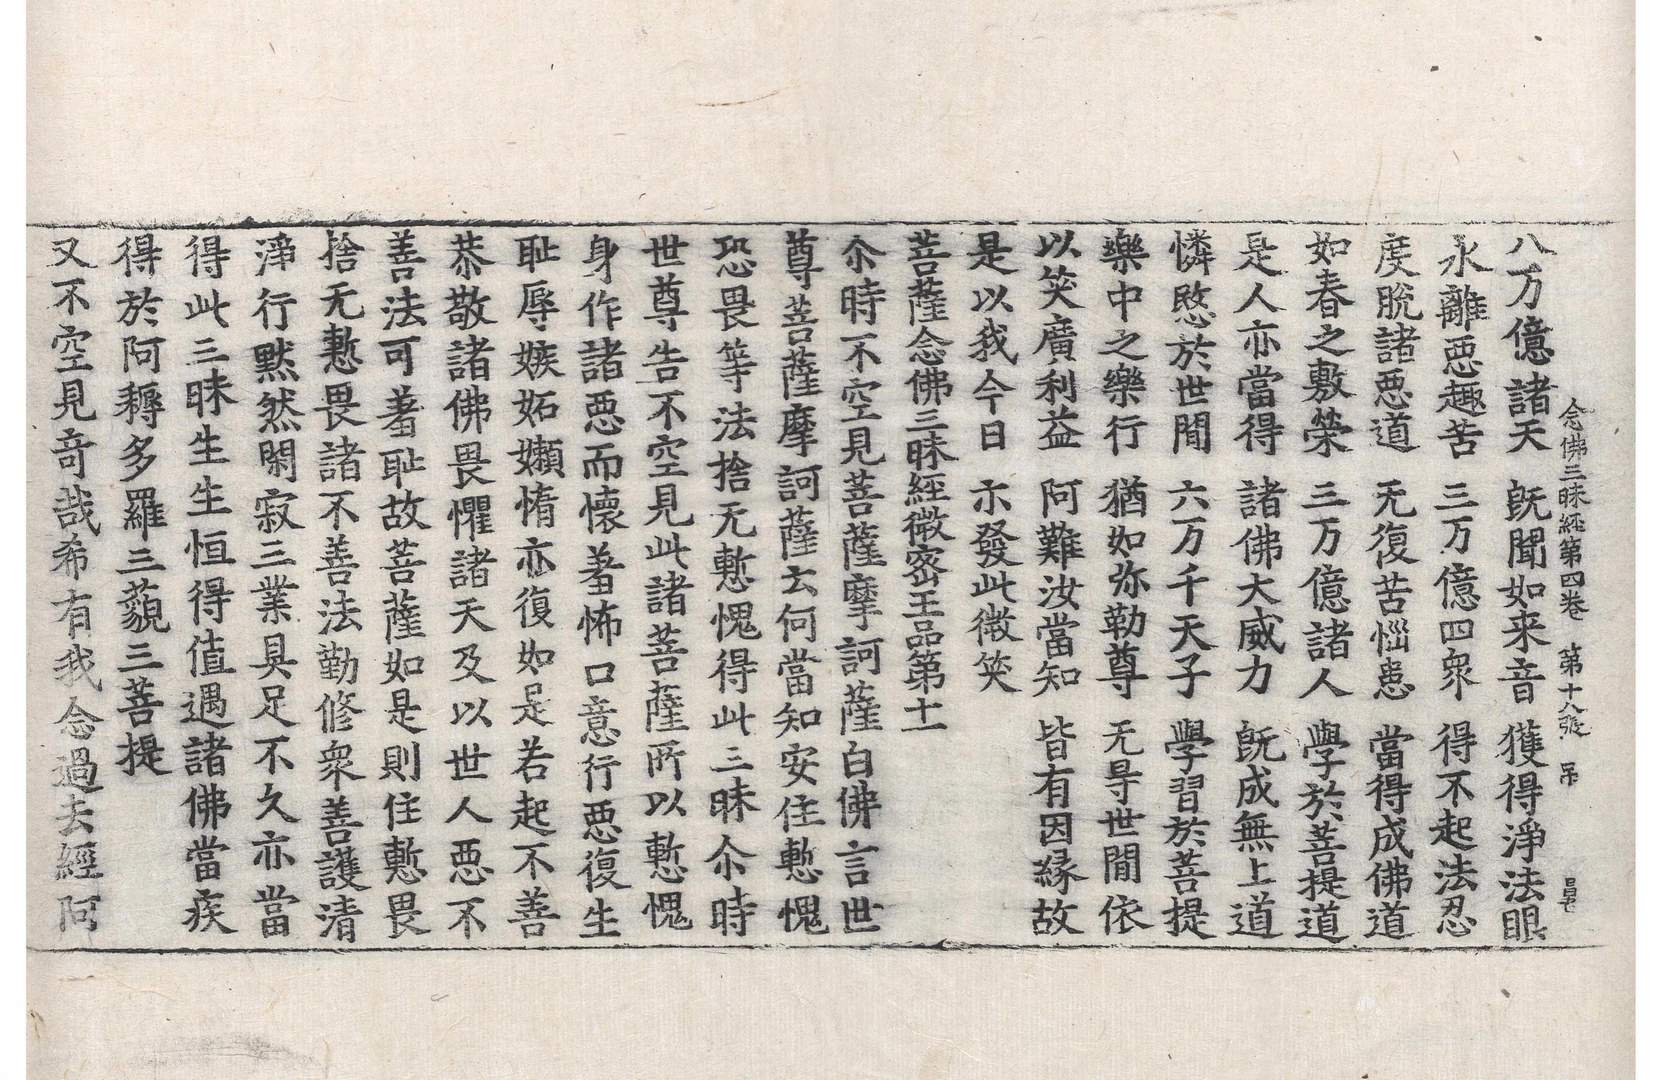 念佛三昧經第四卷 第十八張 吊
八万億諸天 旣聞如来音 獲得淨法眼
永離惡趣苦 三万億四衆 得不起法忍
度脫諸惡道 无復苦惱患 當得成佛道
如春之敷榮 三万億諸人 學於菩提道
是人亦當得 諸佛大威力 旣成無上道
憐愍於世閒 六万千天子 學習於菩提
樂中之樂行 猶如弥勒尊 无㝵世閒依
以笑廣利益 阿難汝當知 皆有因緣故
是以我今日 尒發此微笑
菩薩念佛三昧經微密王品第十一
尒時不空見菩薩摩訶薩白佛言世
尊菩薩摩訶薩云何當知安住慙愧
恐畏等法捨无慙愧得此三昧尒時
世尊告不空見此諸菩薩所以慙愧
身作諸惡而懷羞怖口意行惡復生
耻辱嫉妬嬾惰亦復如是若起不善
恭敬諸佛畏懼諸天及以世人惡不
善法可羞耻故菩薩如是則住慙畏
捨无慙畏諸不善法勤修衆善護清
淨行黙然閑寂三業具足不久亦當
得此三昧生生恒得值遇諸佛當疾
得於阿耨多羅三藐三菩提
又不空見奇哉希有我念過去經阿